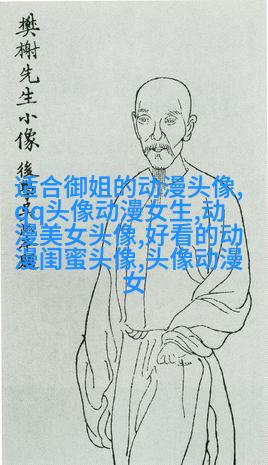 樊榭先生小像 後
适合御姐的动漫头像,
qq头像动漫女生,动
漫美女头像,好看的动
漫闺蜜头像,头像动漫
女